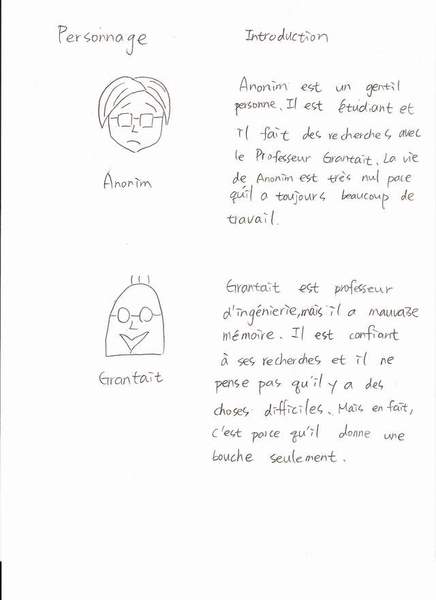 Personnage
Introduction
Anonim est un gentil
personne. Il est étudiant et
Il fait des recherches avec
le Professeur Grantait. La vie
de Anonim est très nul pace
qu'il a toujours beaucoup de
travail.
Anonim
Grantait est professeur
d'ingénierie, mais il a mauvaise
mémoire. Il est confiant
à ses recherches et il ne
pense pas qu'il y a des
choses difficiles. Mais en fait,
c'est parce qu'il donne une
bouche seulement.
Grantait